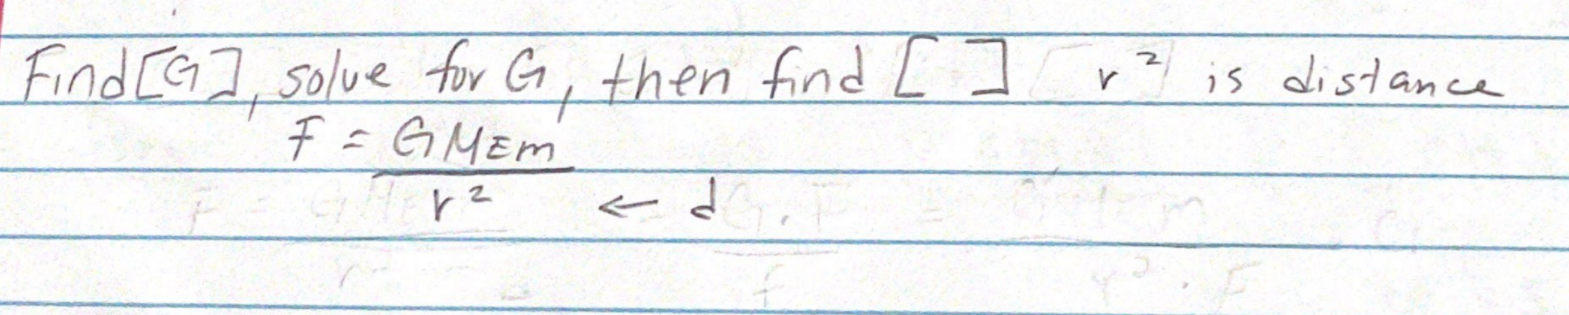 Find [G], solve for G, then find [ ] r² is distance
F = GMEm
r² ← d